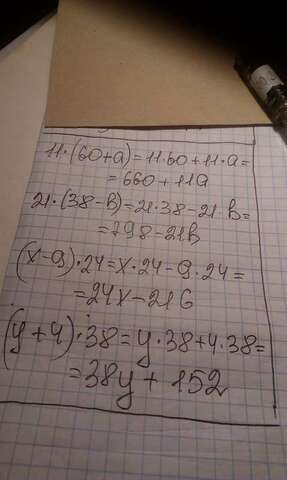 11·(60+a)=11·60+11·a=
=660+11a
21·(38-в)=21·38-21в=
=798-21в
(x-9)·24=x·24-9·24=
=24x-216
(y+4)·38=y·38+4·38=
=38y+152